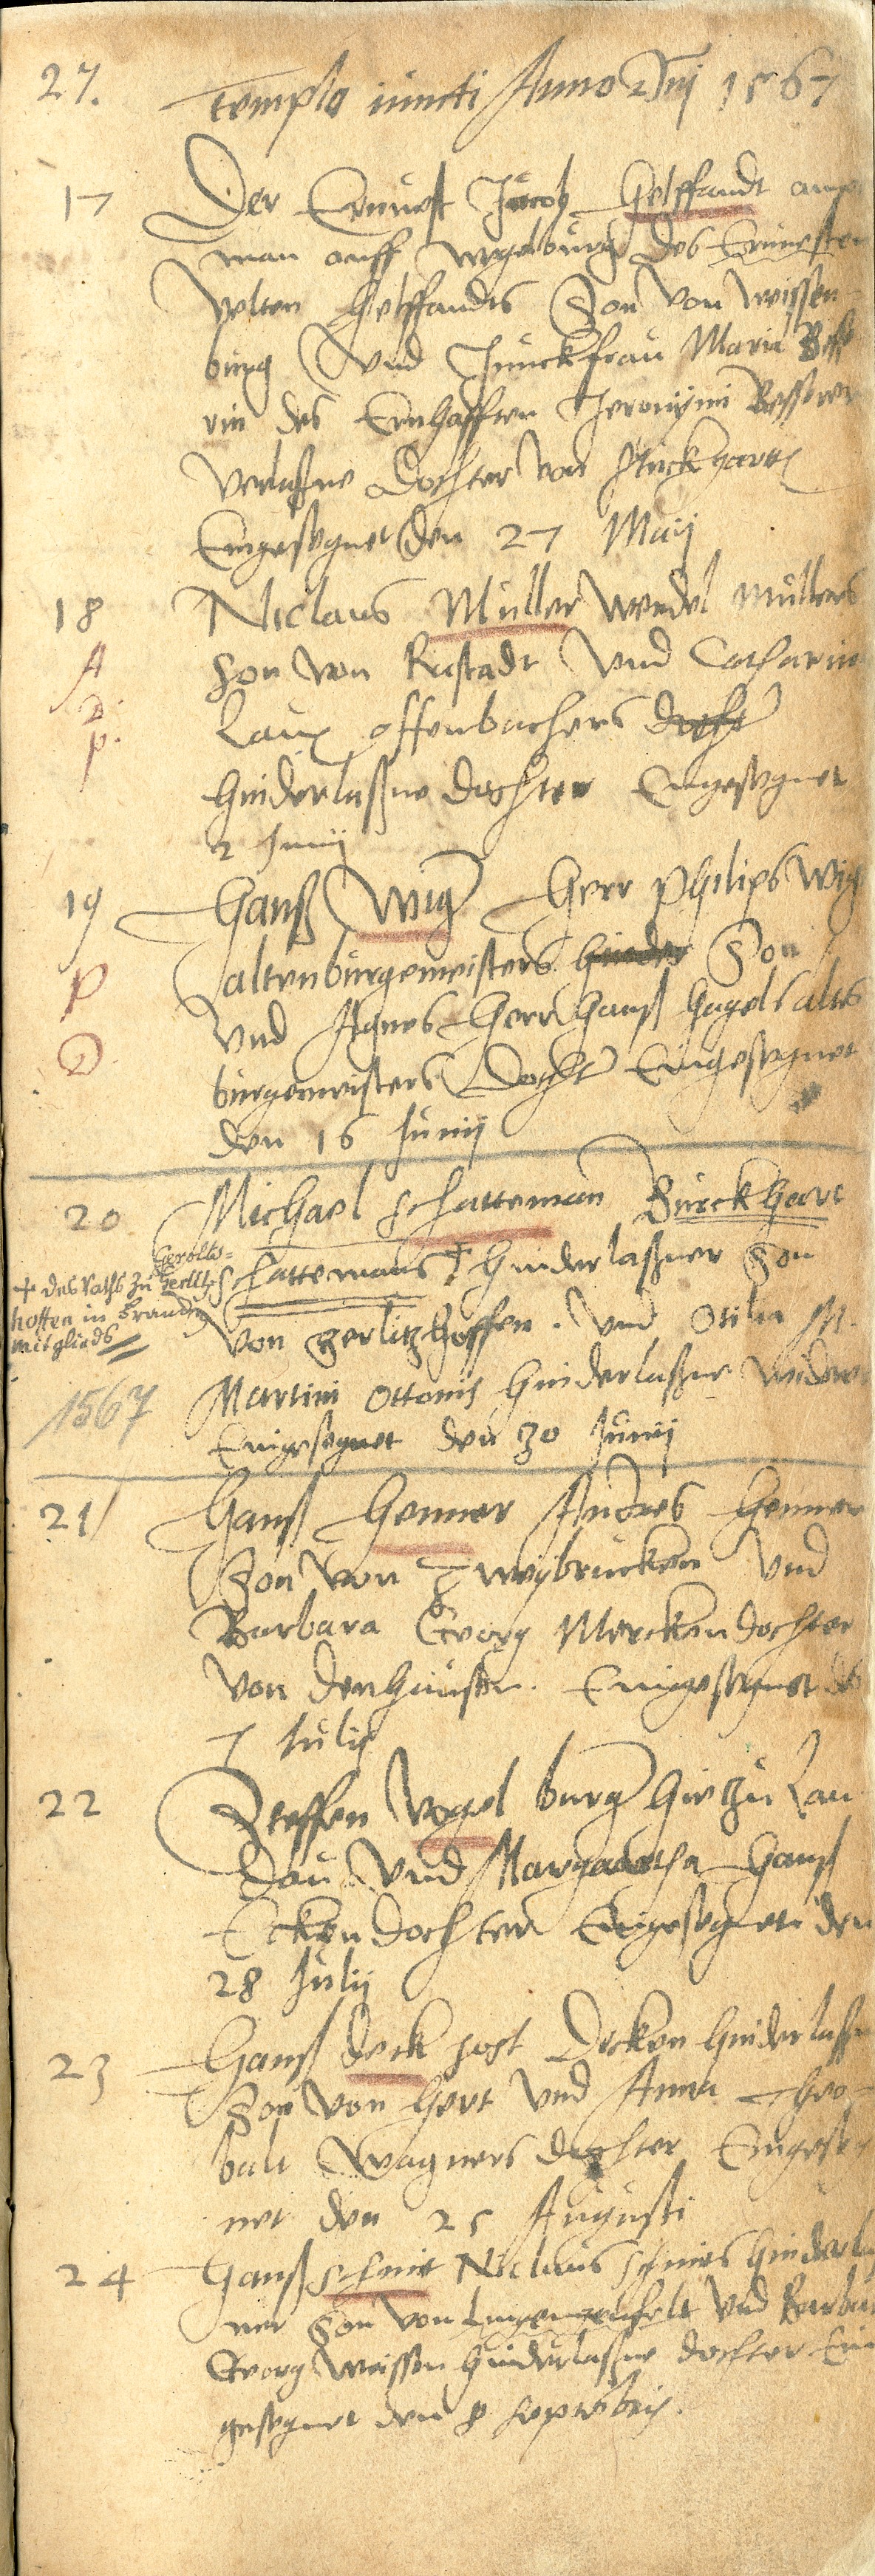 27.
Templo iuncti Anno Dnj 1567
17
Der Ernuest Jacob Helffandt amp
man auff wegelburg des Ernuesten
velten Helffandts Son von weissen
burg Vnd Junckfrau Maria Bess
rin des Ernhafften Jeronymi Besserer
verlassne Dochter von Stuckgartt
Eingesegnet den 27 Maij
18
Niclaus Müller Wendel müllers
A
son von Rustadt Vnd Catharin
D.
Laux offenbachers docht
P.
hinderlaßne dochter Eingesegnet
2 Junij
19
Hanß Wig Herr Philips Wig
P
altenburgemeisters hinder Son
D
Vnd Agnes Herr Hanß Hagels altes
burgemeisters Docht Eingesegnet
den 16 Junij
20
Michael schatteman Burckhart
schattemans † hinderlaßner Son
Gerolts-
+ des Raths zu Herlitz
hoffen in Franck
mitglieds
von Herlitzhoffen. Vnd Otilia M.
1567
Martini Ottonis hinderlaßne widwe
Eingesegnet den 30 Junij
21
Hanß Henner Andres Henner
Son von Zweybrucken Vnd
Barbara Georg Mercken dochter
Von denhäusern. Eingesegnet de
7 Julij
22
Steffen Vogel burg hie zu Lan
dau Vnd Margaretha Hanß
Ecken dochter Eingesegnet den
28 Julij
23
Hanß deck jost Decken hinderlassn
Son von Hert Vnd Anna Theo-
balt Wagners dochter Eingeseg
net den 25 Augusti
24
Hanß schmit Niclaus schmits hinderla
ner Son von Lingenfelt Vnd Barbar
Georg Weissen hinderlaßne dochter Ein
gesegnet den 8 septembris.